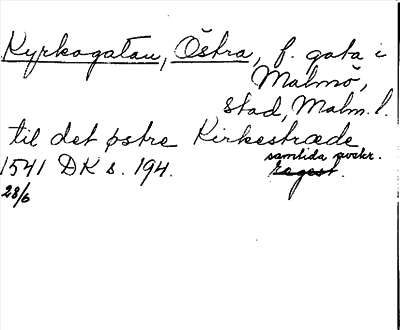 Kyrkogatan, Östra, f. gata i
Malmö,
stad, Malm. l.
til det østre Kirkestræde
1541 DK s. 194. samtida avskr.
Regest.
28/6